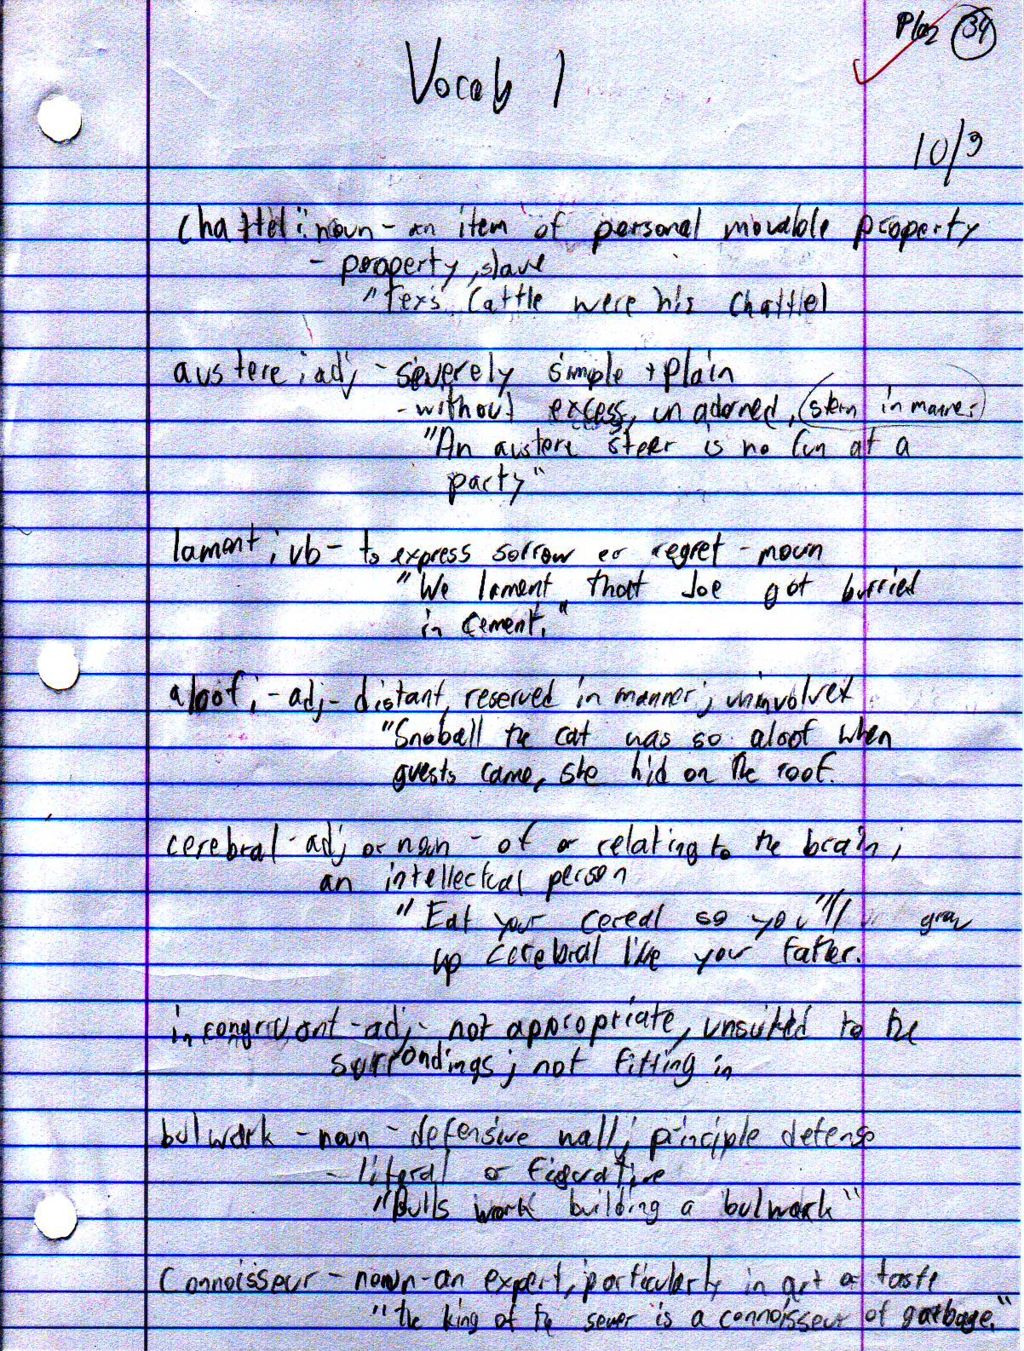 34
Vocab 1
10/9
chattel; noun - an item of personal movable property
- property, slave
"Tex's Cattle were his chattel
austere; adj - severely simple + plain
- without excess, unadorned, (stern in manner)
"An austere steer is no fun at a
party"
lament; vb - to express sorrow or regret - moun
"We lament that Joe got burried
in cement."
aloof; - adj - distant, reserved in manner; uninvolved
"Snoball the cat was so aloof when
guests came, she hid on the roof.
cerebral - adj or noun - of or relating to the brain;
an intellectual person
"Eat your cereal so you'll grow
up cerebral like your father.
incongruent - adj - not appropriate, unsuited to the
surrondings; not fitting in
bulwark - noun - defensive wall; principle defense
- literal or figurative
"Bulls work building a bulwark"
Connoisseur - noun - an expert, particularly in art or taste
"the king of the sewer is a connoisseur of garbage."